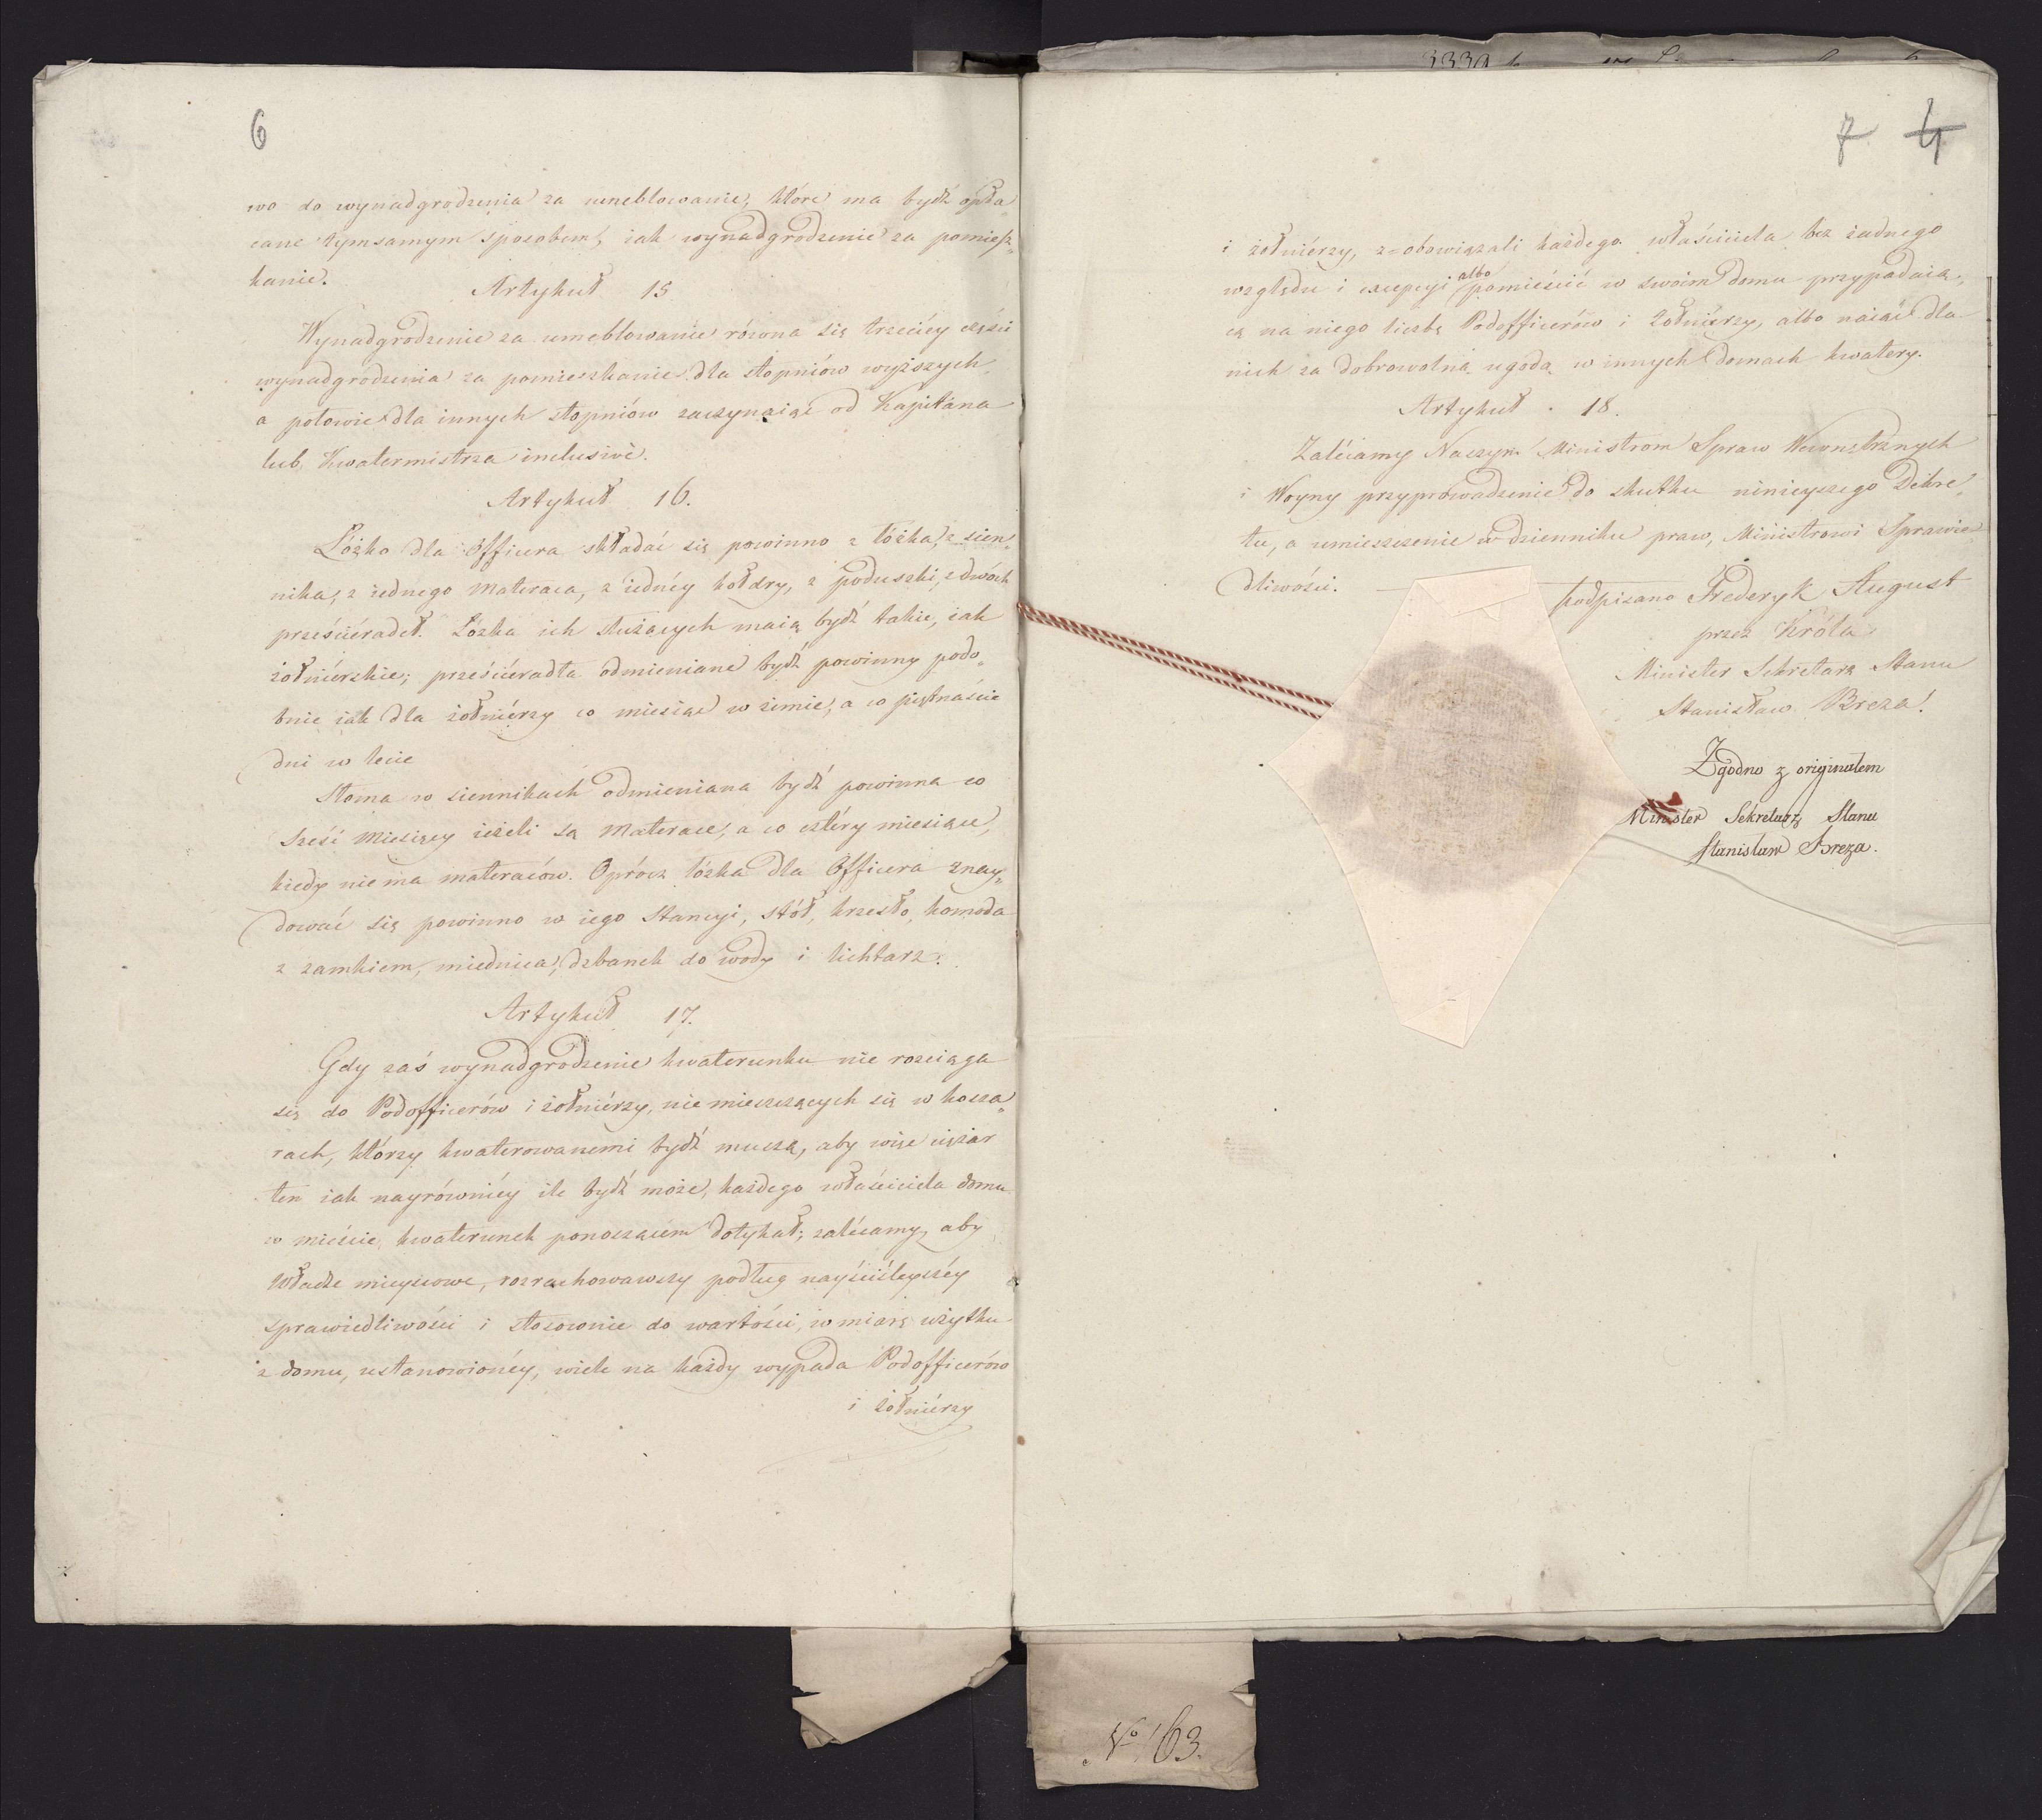 6
wo do wynadgrodzenia za umeblowanie, które ma bydź opła„
cane tymsamym sposobem, iak wynadgrodzenie za pomiesz„
kanie.
Artykuł 15
Wynadgrodzenie za umeblowanie równa się trzeciéy części
wynadgrodzenia za pomieszkanie dla stopniów wyższych,
a połowie dla innych stopniów zaczynaiąc od Kapitana
lub Kwatermistrza inclusivè.
Artykuł 16.
Łóżko dla Officera składać się powinno z łóżka, z sien„
nika, z iednego materaca, z iednéy kołdry, z poduszki, z dwóch
prześcieradeł. Łóżka ich służących maią bydź takie, iak
żołniérskie; prześcieradła odmieniane bydź powinny podo„
bnie iak dla żołniérzy co miesiąc w zimie, a co piętnaście
dni w lecie
Słoma w siennikach odmieniana bydź powinna co
sześć miesięcy ieżeli są materace, a co cztéry miesiące,
kiedy nie ma materaców. Oprócz łóżka dla Officera znay„
dować się powinno w iego stancyi, stół, krzesło, komoda
z zamkiem, miednica, dzbanek do wody i lichtarz.
Artykuł 17.
Gdy zaś wynadgrodzenie kwaterunku nie rozciąga
się do Podofficerów i żołniérzy, nie mieszczących się w kosza„
rach, którzy kwaterowanemi bydź muszą, aby więc ciężar
ten iak nayrówniéy ile bydź może, każdego właściciela domu
w mieście, kwaterunek ponoszącém dotykał; zalécamy, aby
władze mieyscowe, rozrachowawszy podług nayściśleyszéy
sprawiedliwości i stosownie do wartości, w miarę użytku
z domu, ustanowionéy, wiele na każdy wypada Podofficerów
i żołniérzy
7 4
i żołniérzy, z=obowiązali każdego właściciela bez żadnego
względu i excepcyi albo pomieścić w swoim domu przypadaią„
cą na niego liczbę Podofficerów i Żołniérzy, albo naiąć dla
nich za dobrowolną ugodą w innych domach kwatery.
Artykuł 18.
Zalécamy Naszym Ministrom Spraw Wewnętrznych
i Woyny przyprowadzenie do skutku ninieyszego Dekre„
tu, a umieszczenie w dzienniku praw, Ministrowi Sprawie„
dliwości.
podpisano Frederyk August
przez Króla
Minister Sekretarz Stanu
Stanisław Breza!
Zgodno z originałem
Minister Sekretarz Stanu
Stanisław Breza.
№ 163.